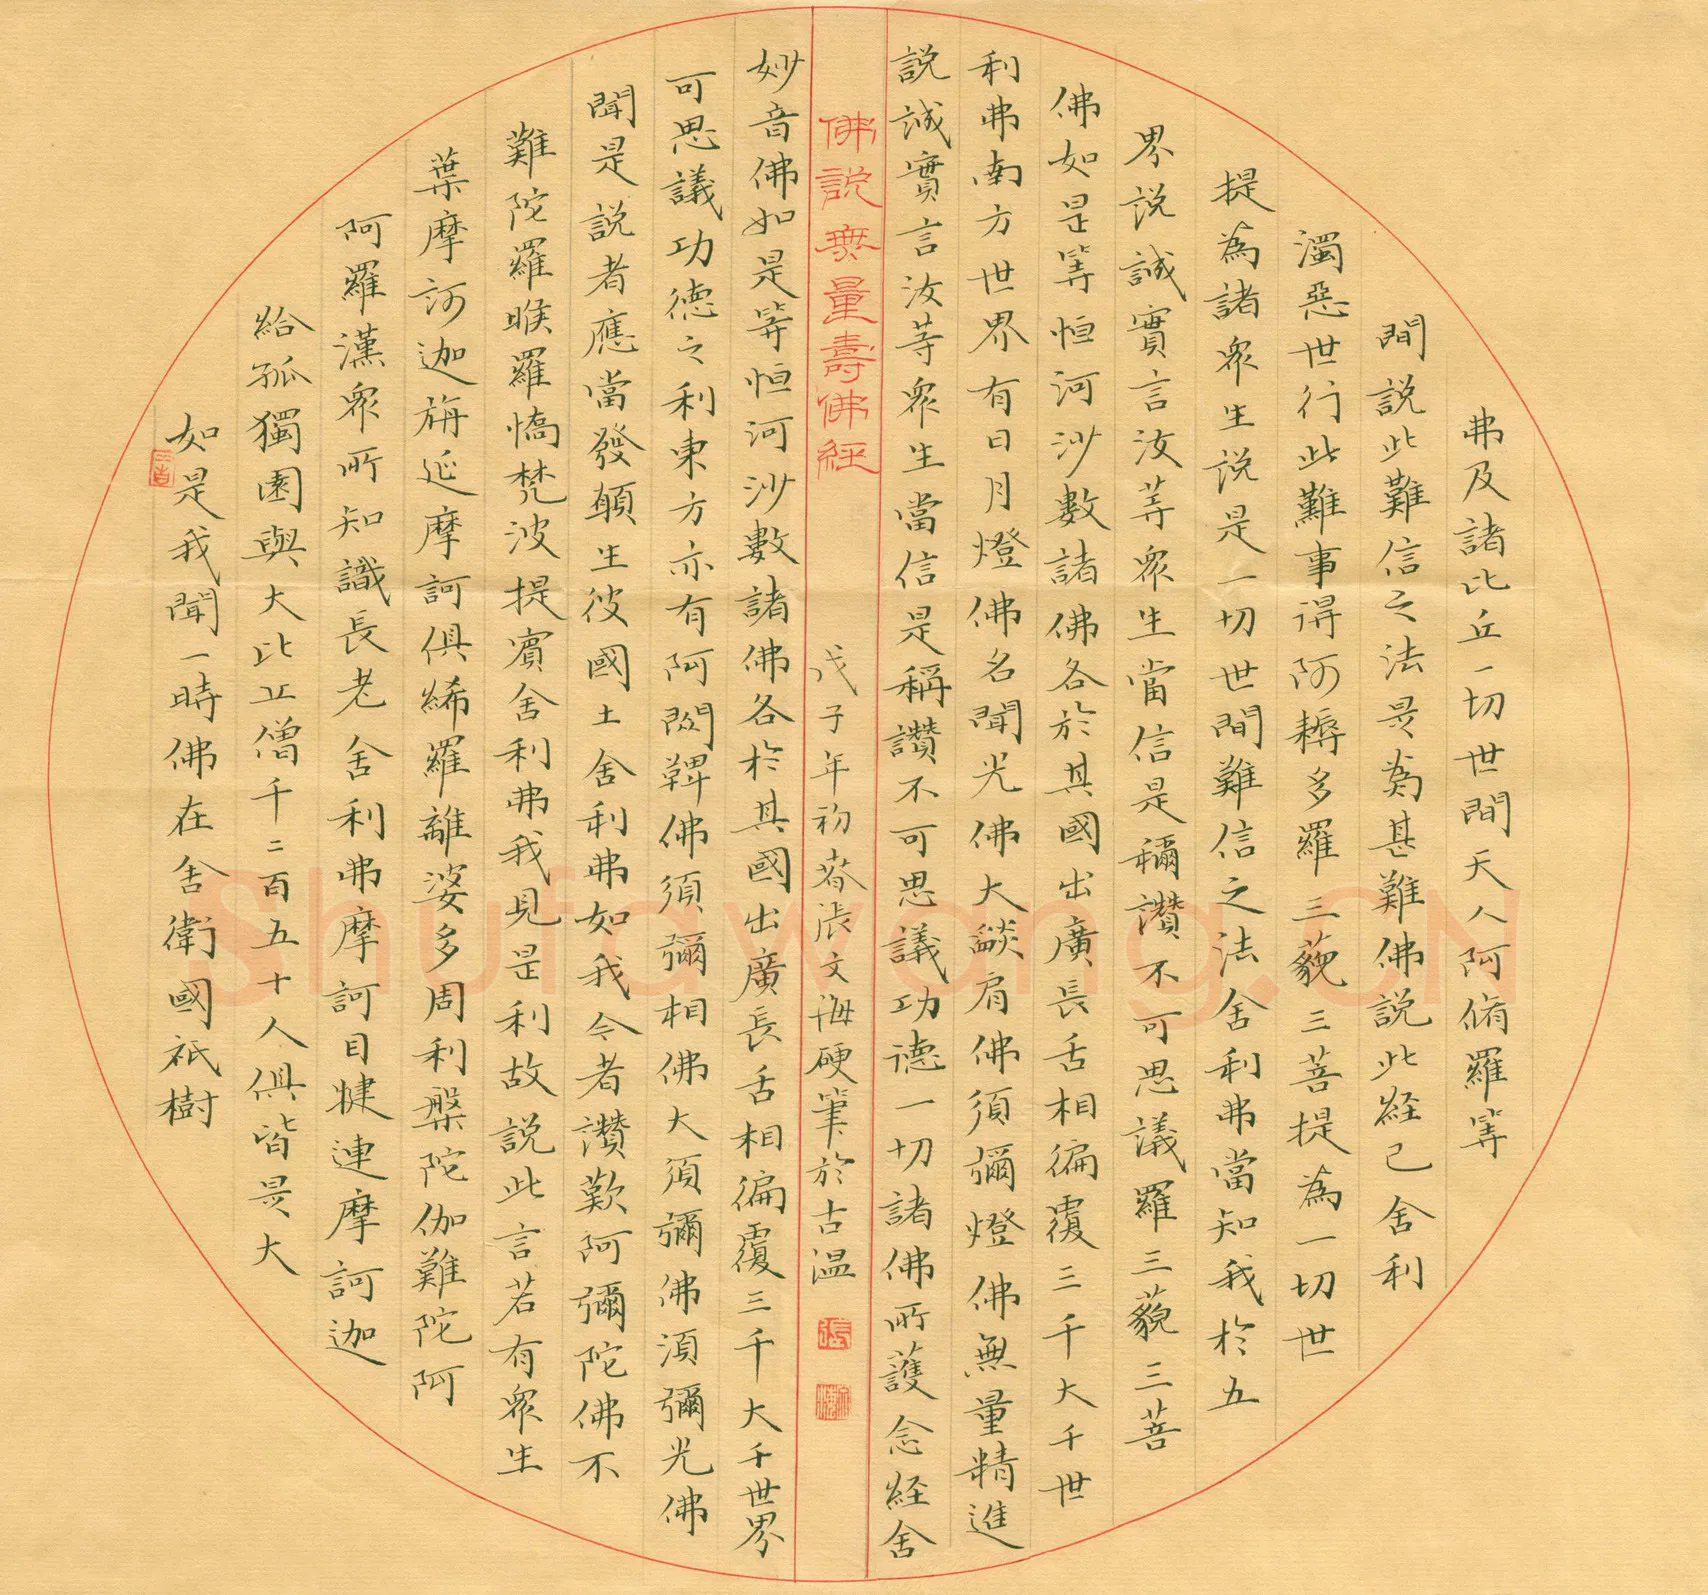 如是我聞一時佛在舍衛國祇樹
給孤獨園與大比丘僧千二百五十人俱皆是大
阿羅漢眾所知識長老舍利弗摩訶目犍連摩訶迦
葉摩訶迦旃延摩訶俱絺羅離婆多周利槃陀伽難陀阿
難陀羅睺羅憍梵波提賓舍利弗我見是利故説此言若有眾生
聞是説者應當發願生彼國土舍利弗如我今者讚歎阿彌陀佛不
可思議功德之利東方亦有阿閦鞞佛須彌相佛大須彌佛須彌光佛
妙音佛如是等恒河沙數諸佛各於其國出廣長舌相徧覆三千大千世界
佛説無量壽佛經
戊子年初春張文海硬筆於古温
説誠實言汝等眾生當信是稱讚不可思議功德一切諸佛所護念經舍
利弗南方世界有日月燈佛名聞光佛大燄肩佛須彌燈佛無量精進
佛如是等恒河沙數諸佛各於其國出廣長舌相徧覆三千大千世
界説誠實言汝等眾生當信是稱讚不可思議羅三藐三菩
提為諸眾生説是一切世間難信之法舍利弗當知我於五
濁惡世行此難事得阿耨多羅三藐三菩提為一切世
間説此難信之法是為甚難佛説此經已舍利
弗及諸比丘一切世間天人阿脩羅等
Shufawang.CN